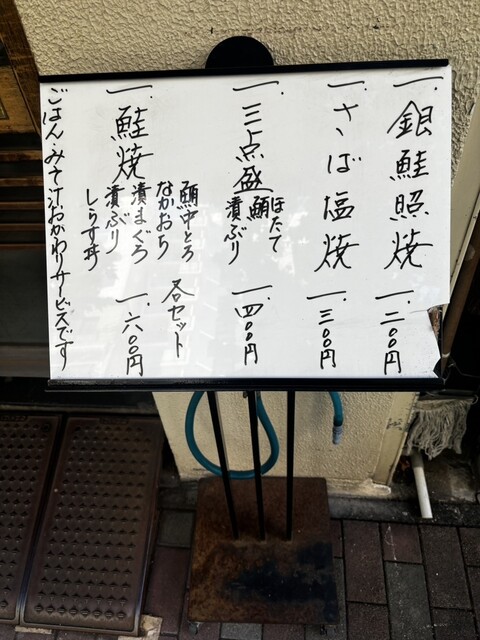 一、銀鮭照焼 一、二〇〇円
一、さば塩焼 一、三〇〇円
一、三点盛 ほたて 一、四〇〇円
漬ぶり
一、鮭焼 各セット 一、六〇〇円
中とろ
なかおち
漬まぐろ
漬ぶり
しらす丼
ごはん・みそ汁おかわりサービスです